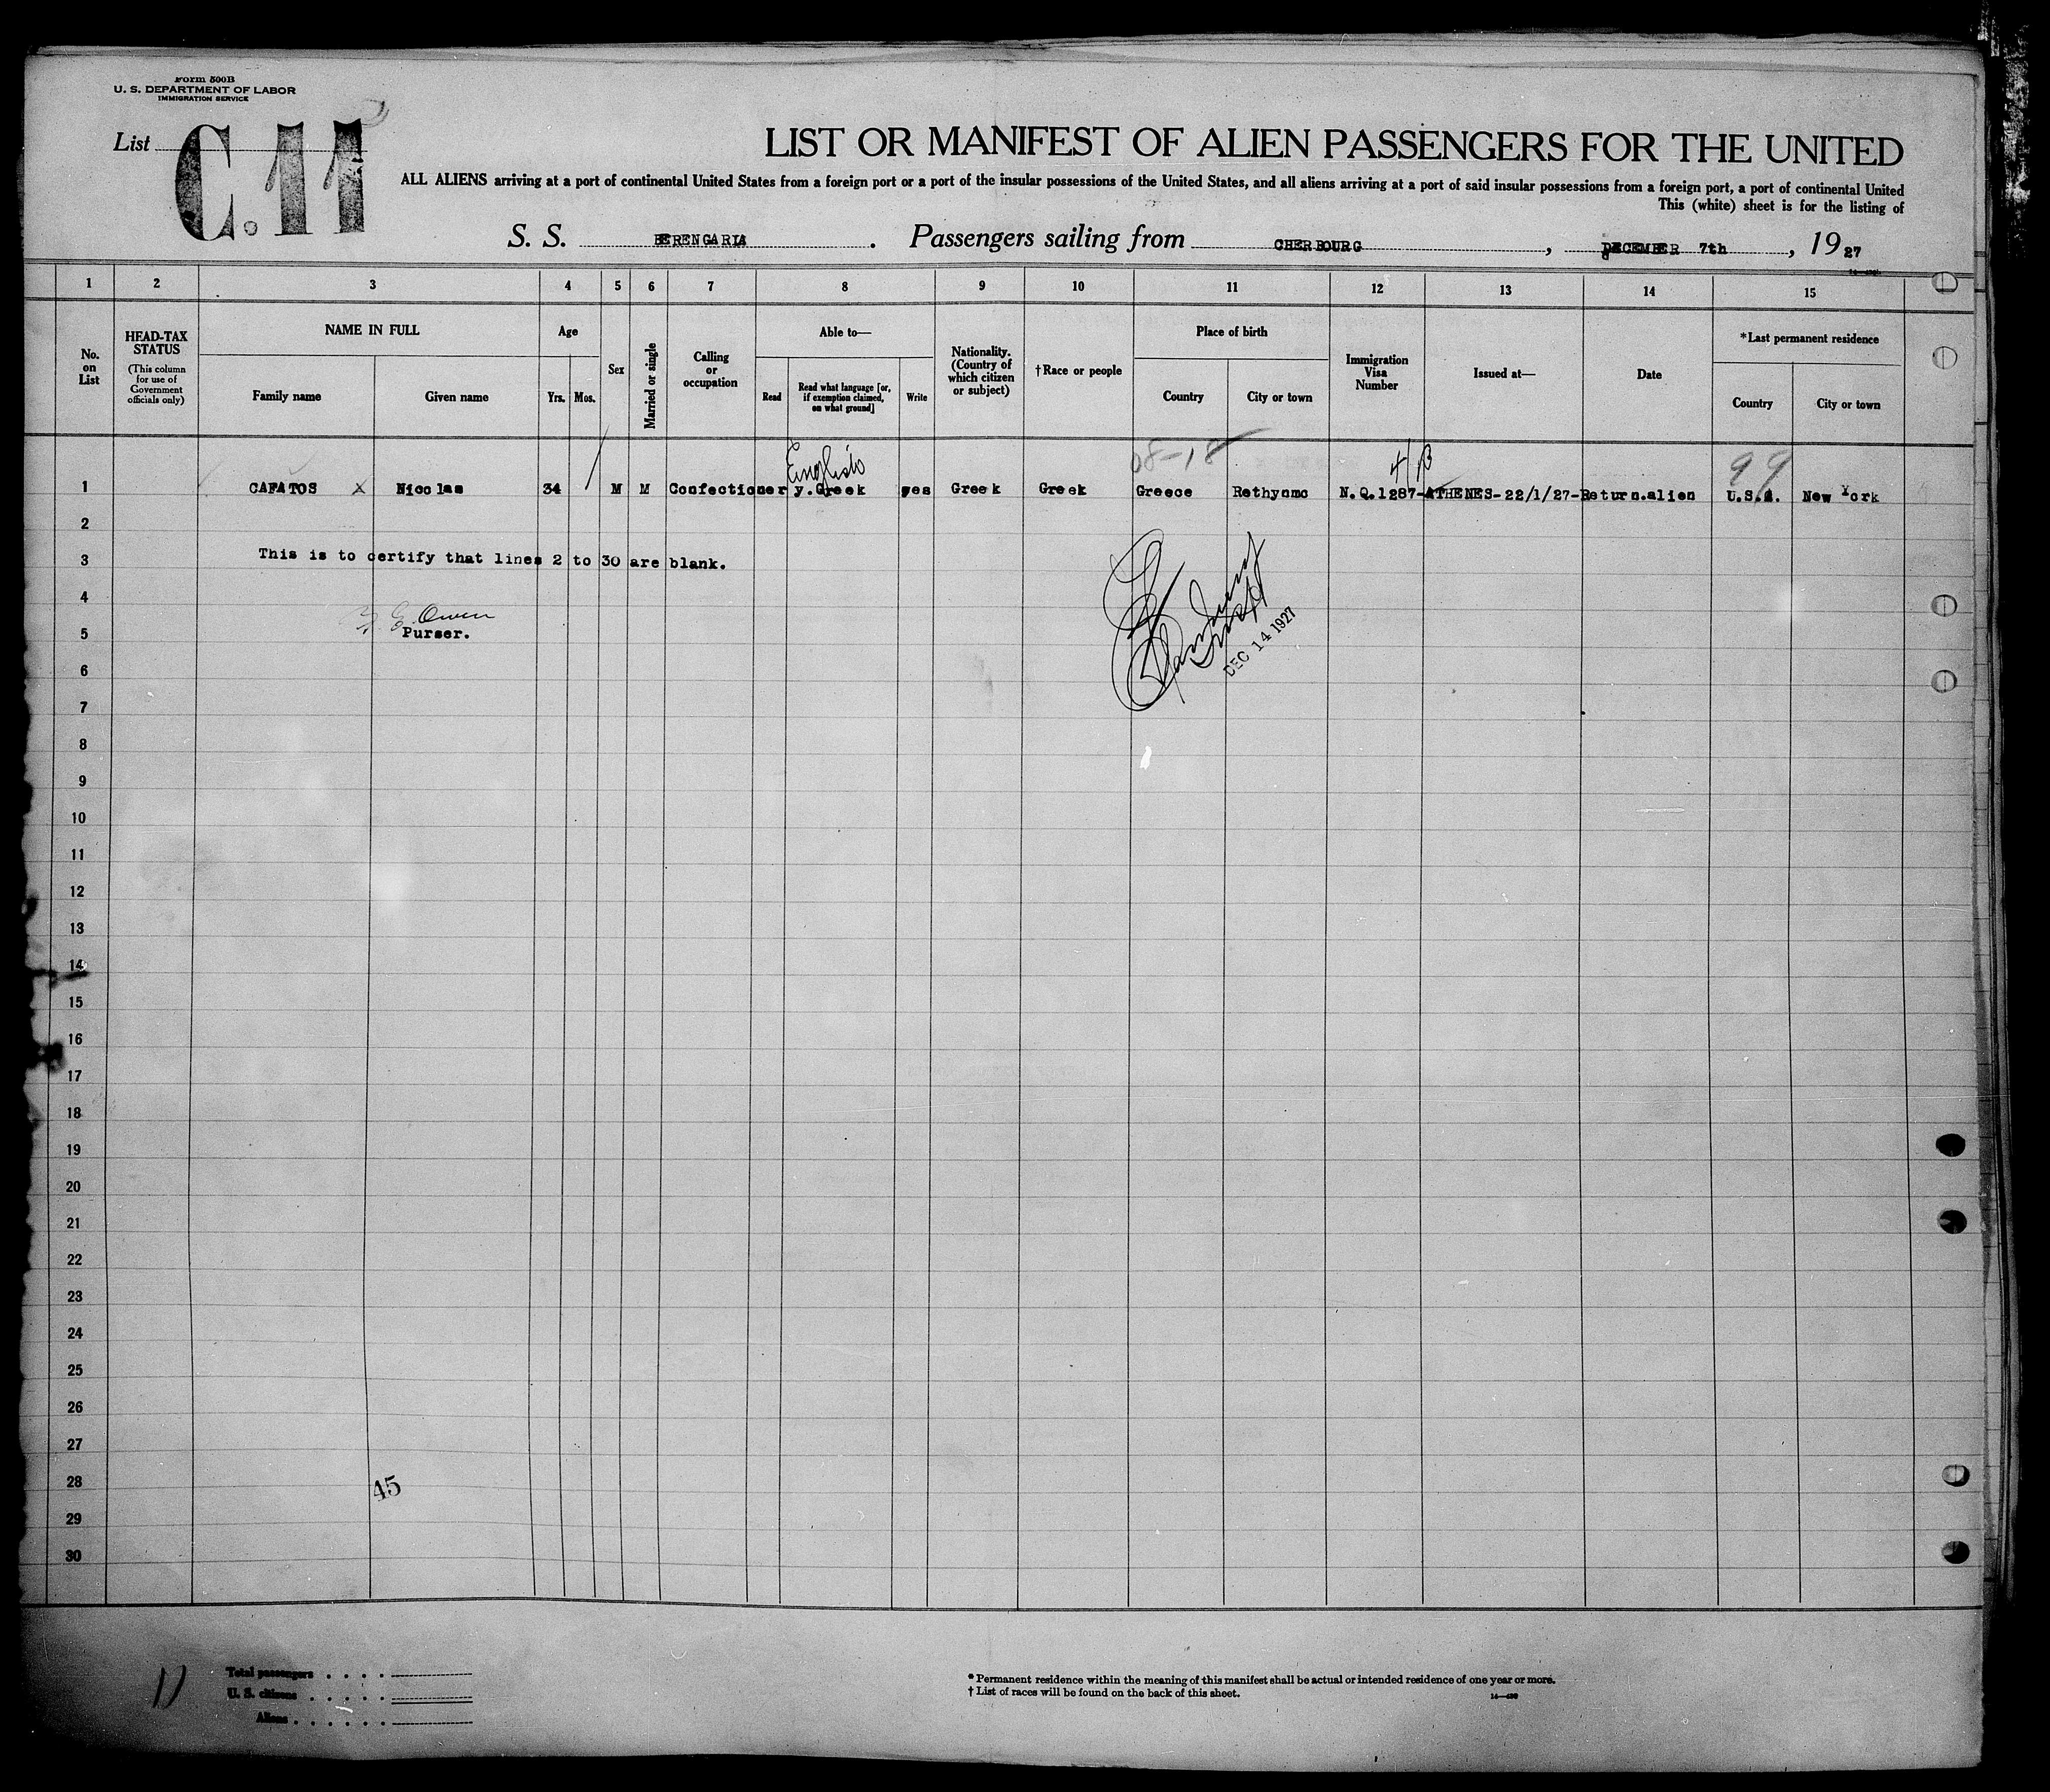 Form 500B
U. S. DEPARTMENT OF LABOR
IMMIGRATION SERVICE
List C.11
LIST OR MANIFEST OF ALIEN PASSENGERS FOR THE UNITED
ALL ALIENS arriving at a port of continental United States from a foreign port or a port of the insular possessions of the United States, and all aliens arriving at a port of said insular possessions from a foreign port, a port of continental United
This (white) sheet is for the listing of
S. S. BERENGARIA . Passengers sailing from CHERBOURG , DECEMBER 7th , 19 27
1 2 3 4 5 6 7 8 9 10 11 12 13 14 15
No. on List
HEAD-TAX STATUS
(This column for use of Government officials only)
NAME IN FULL
Family name
Given name
Age
Yrs.
Mos.
Sex
Married or single
Calling or occupation
Able to—
Read
Read what language [or, if exemption claimed, on what ground]
Write
Nationality. (Country of which citizen or subject)
†Race or people
Place of birth
Country
City or town
Immigration Visa Number
Issued at—
Date
*Last permanent residence
Country
City or town
English 08-18 4 B 99
1 CAFATOS X Nicolas 34 M M Confectionery. Greek yes Greek Greek Greece Rethynmo N.Q.1287-ATHENES-22/1/27-Return.alien U.S.A. New York
2
3 This is to certify that lines 2 to 30 are blank.
4
E. Owen
5 Purser.
DEC 14 1927
6
7
8
9
10
11
12
13
14
15
16
17
18
19
20
21
22
23
24
25
26
27
28
45
29
30
Total passengers
U. S. citizens
Aliens
* Permanent residence within the meaning of this manifest shall be actual or intended residence of one year or more.
† List of races will be found on the back of this sheet.